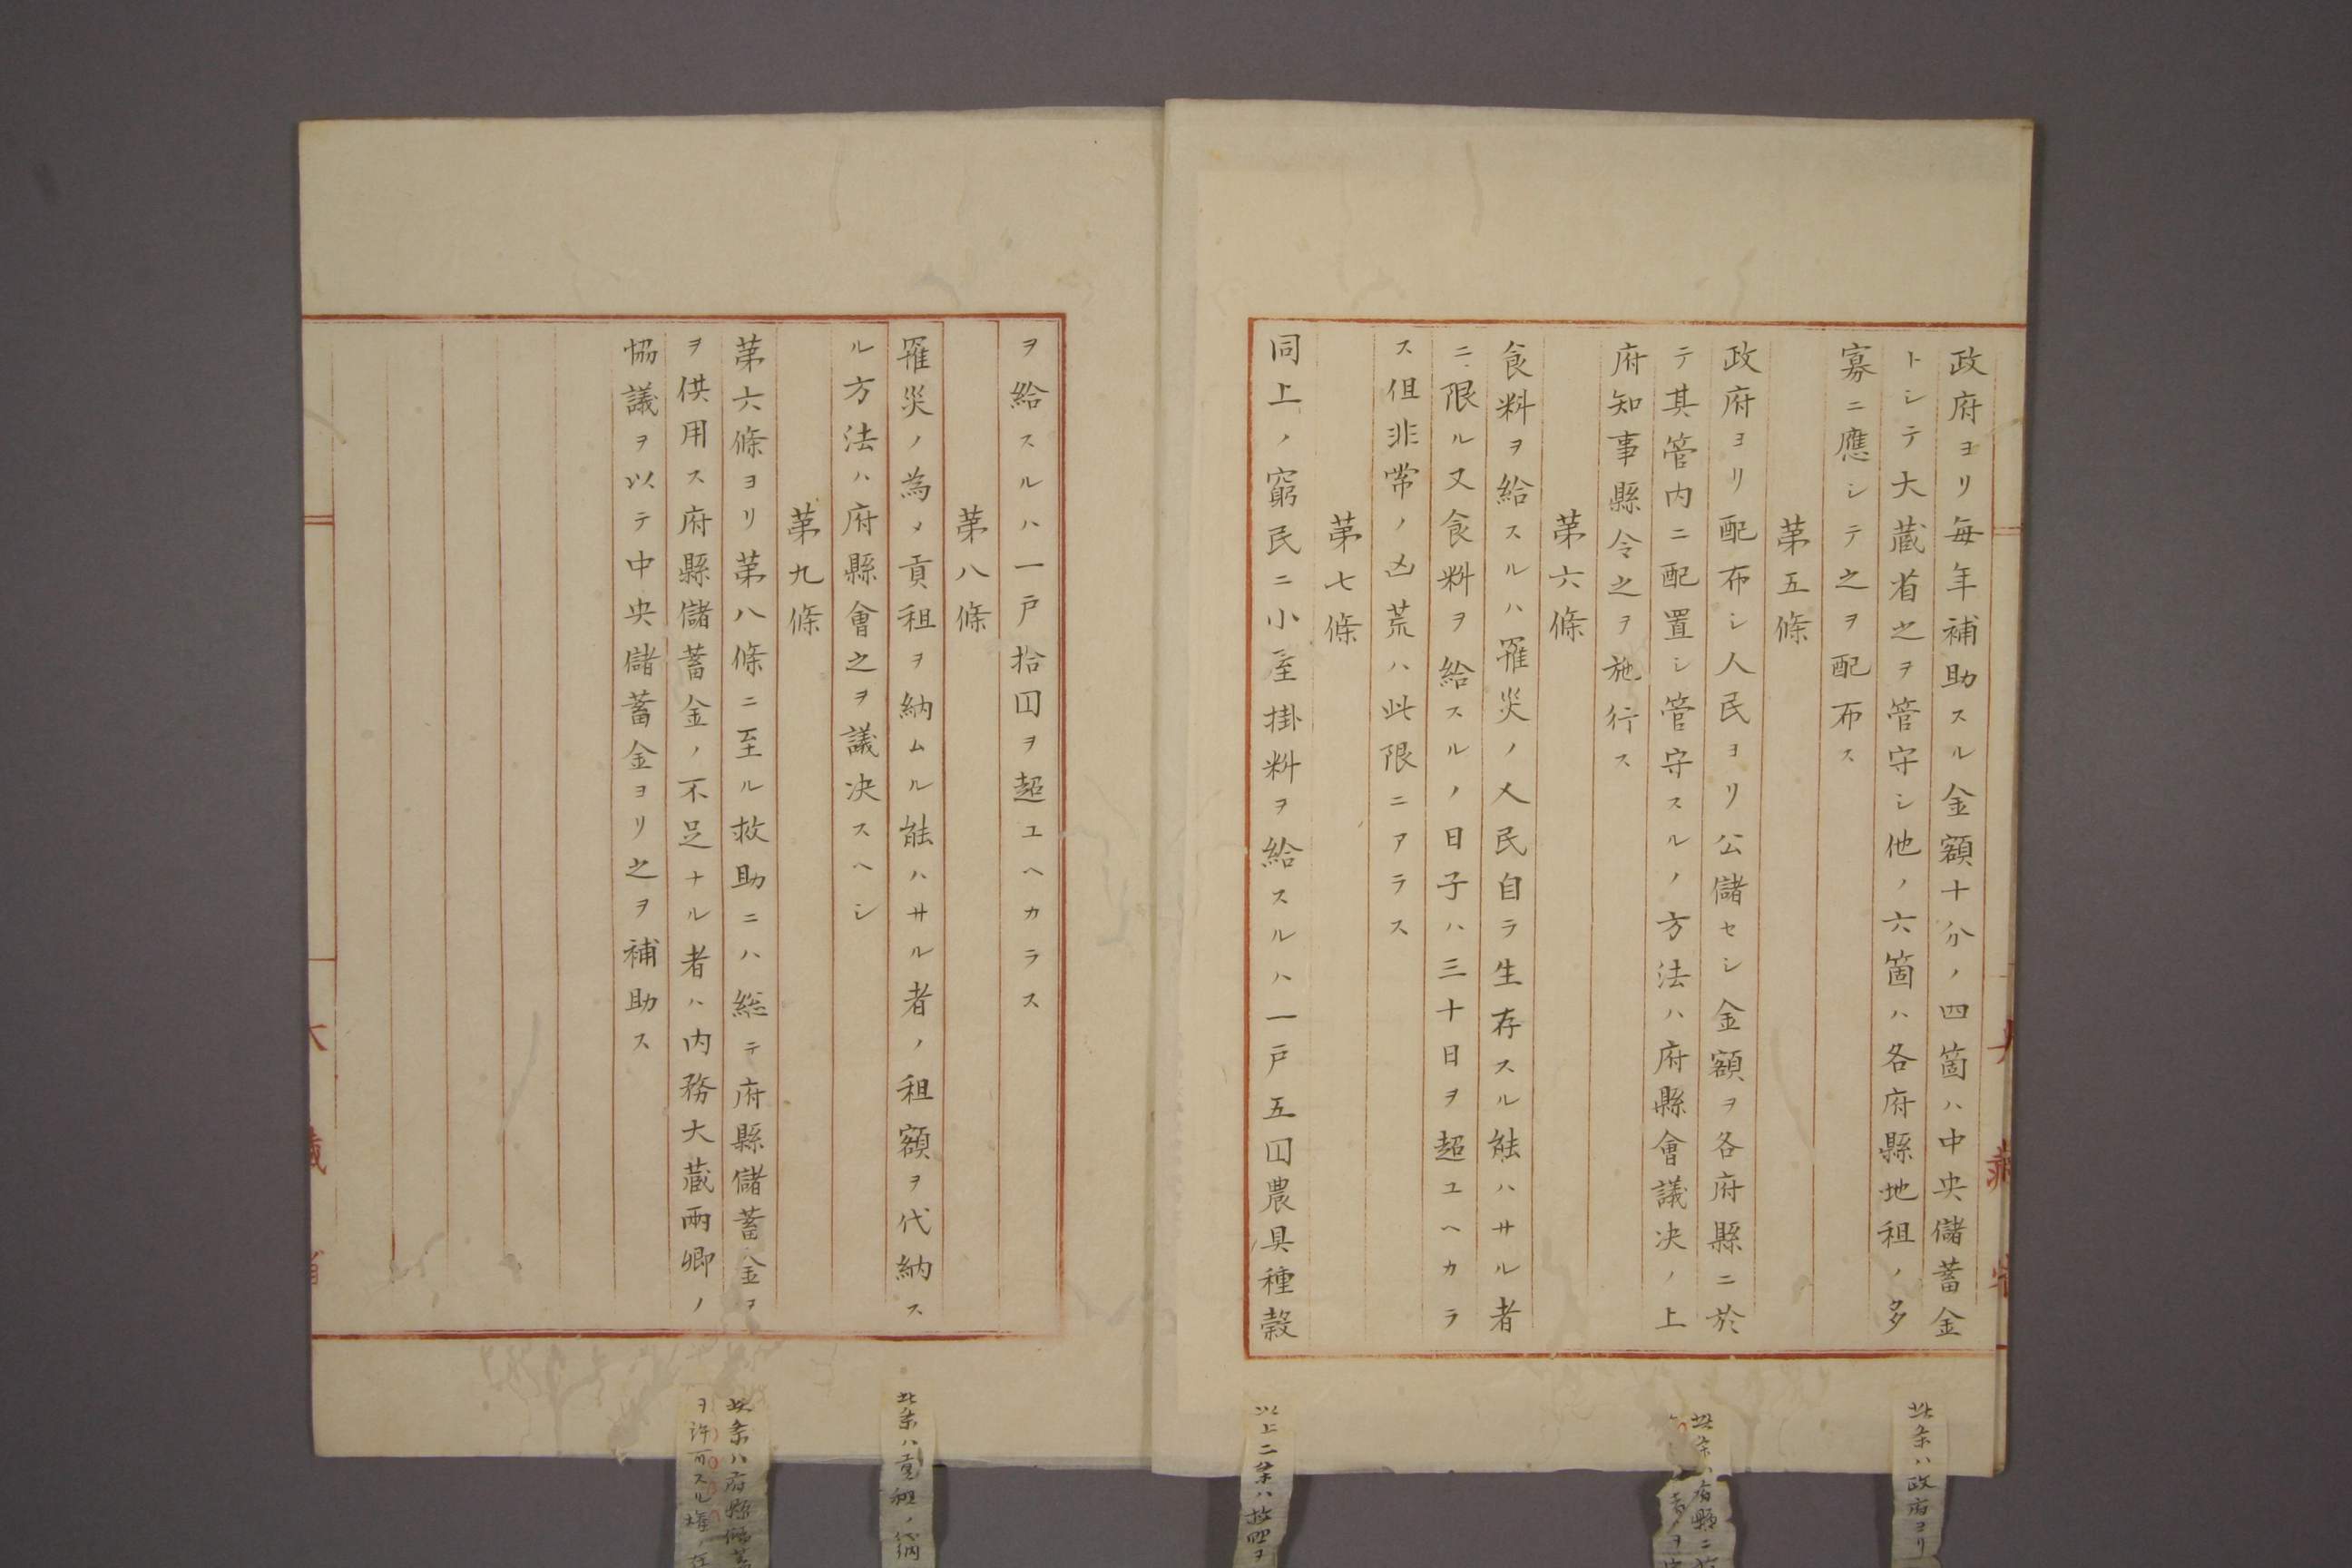 政府ヨリ毎年補助スル金額十分ノ四箇ハ中央儲蓄金
トシテ大蔵省之ヲ管守シ他ノ六箇ハ各府縣地租ノ多
寡ニ應シテ之ヲ配布ス
第五條
政府ヨリ配布シ人民ヨリ公儲セシ金額ヲ各府縣ニ於
テ其管内ニ配置シ管守スルノ方法ハ府縣會議决ノ上
府知事縣令之ヲ施行ス
第六條
食料ヲ給スルハ罹災ノ人民自ラ生存スル能ハサル者
ニ限ル又食料ヲ給スルノ日子ハ三十日ヲ超ユヘカラ
ス但非常ノ凶荒ハ此限ニアラス
第七條
同上ノ窮民ニ小屋掛料ヲ給スルハ一戸五円農具種穀
ヲ給スルハ一戸拾円ヲ超ユヘカラス
第八條
罹災ノ為メ貢租ヲ納ムル能ハサル者ノ租額ヲ代納ス
ル方法ハ府縣會之ヲ議决スヘシ
第九條
第六條ヨリ第八條ニ至ル救助ニハ総テ府縣儲蓄金ヲ
ヲ供用ス府縣儲蓄金ノ不足ナル者ハ内務大蔵両卿ノ
協議ヲ以テ中央儲蓄金ヨリ之ヲ補助ス
大蔵省
此条ハ政府ヨリ
此条ハ府縣ニ
以上二条ハ救恤ヲ
此条ハ貢租ノ代納
此条ハ府縣儲蓄
ヲ許可スル権